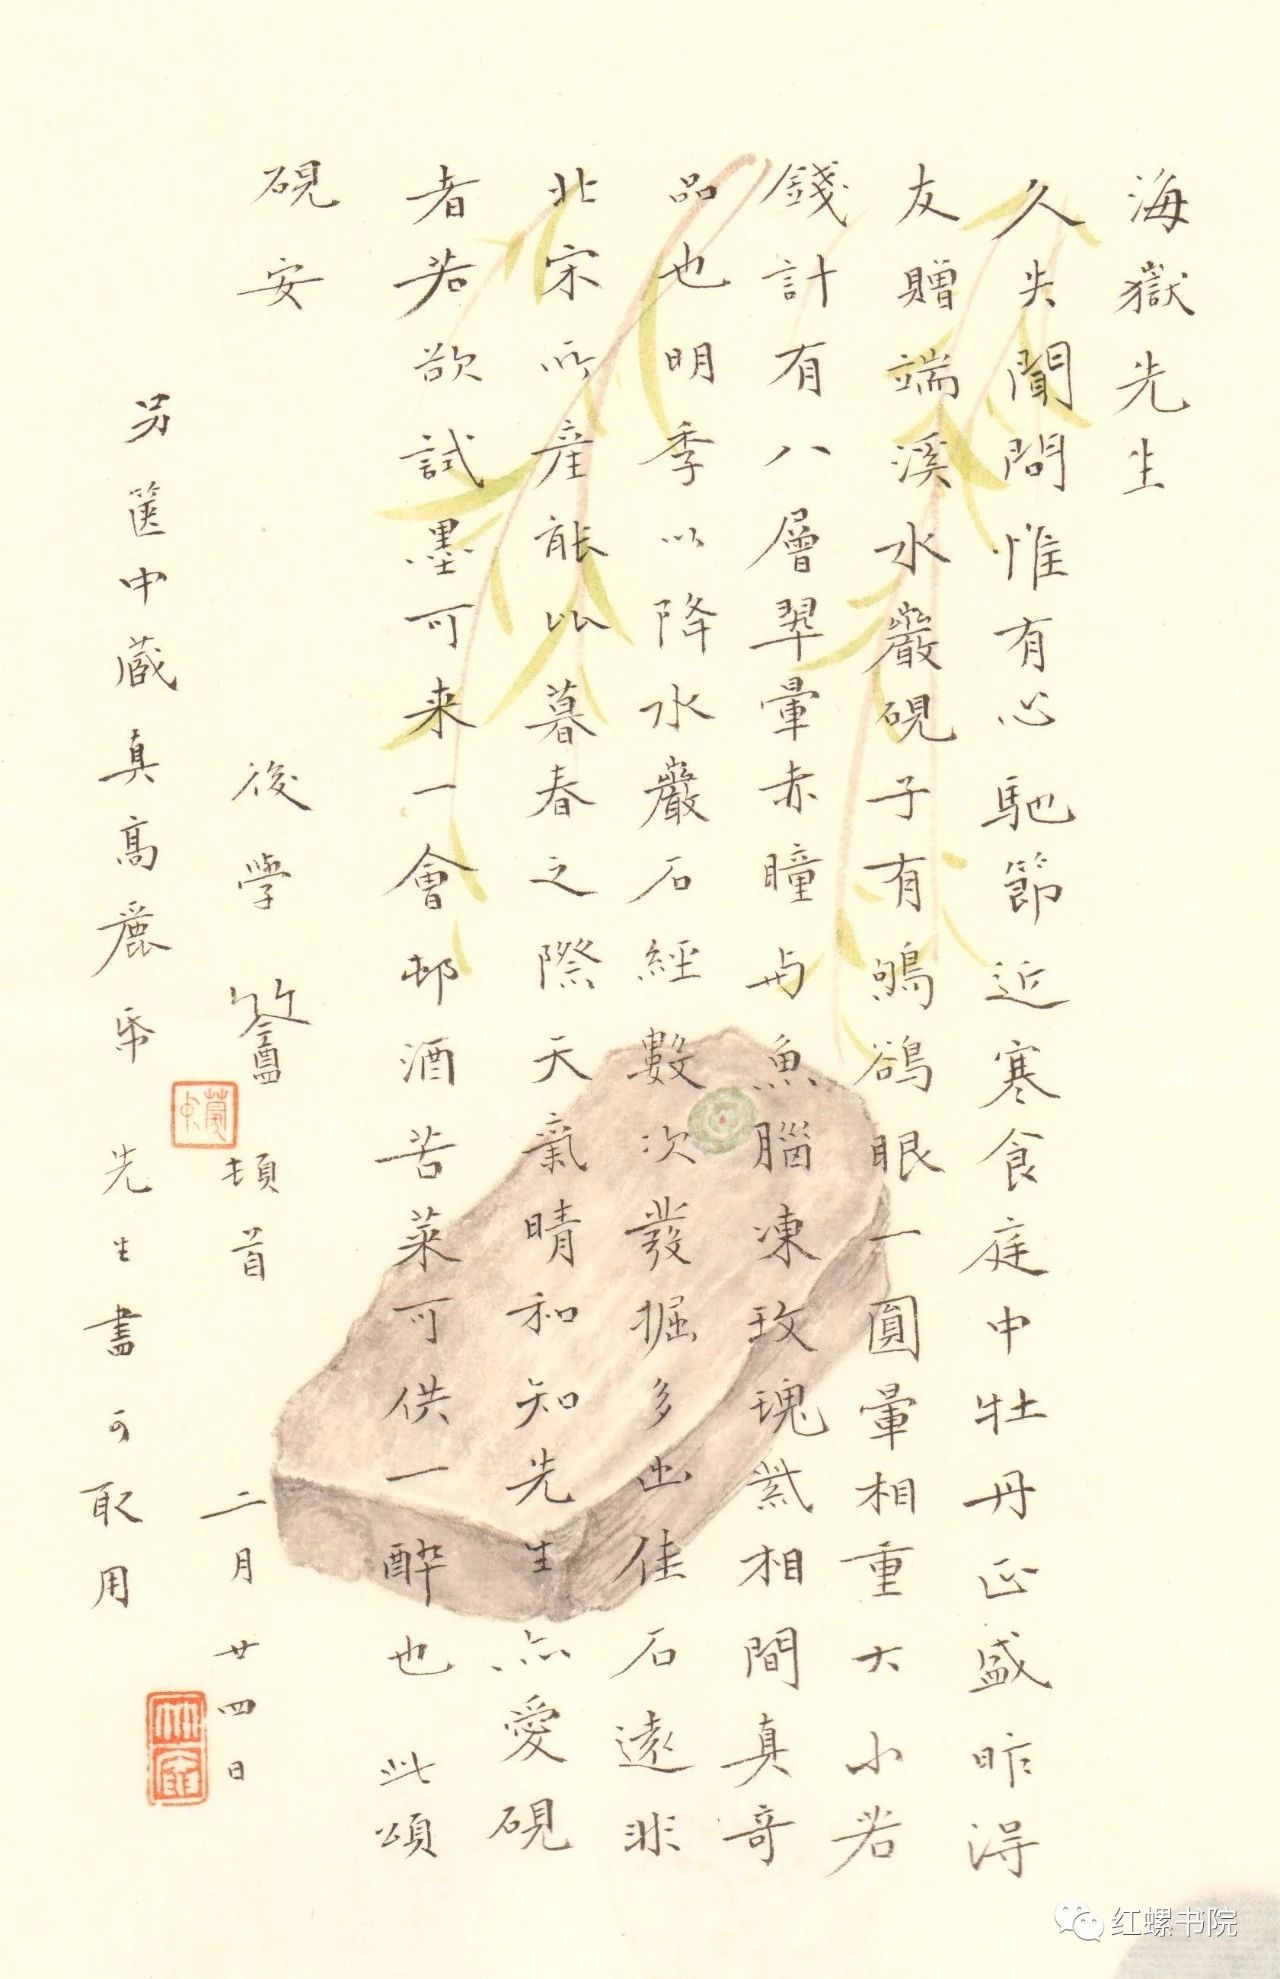 海嶽先生
久失聞問惟有心馳節近寒食庭中牡丹正盛昨得
友贈端溪水巖硯子有鴝鵒眼一圓暈相重大小若
錢計有八層翠暈赤瞳与魚腦凍玫瑰紫相間真奇
品也明季以降水巖石經數次發掘多出佳石遠非
北宋所産能比暮春之際天氣晴和知先生亦愛硯
者若欲試墨可来一會邨酒苦菜可供一醉也 此頌
硯安
後學 頓首 二月廿四日
另篋中蔵真高麗帋 先生書可取用
红螺书院